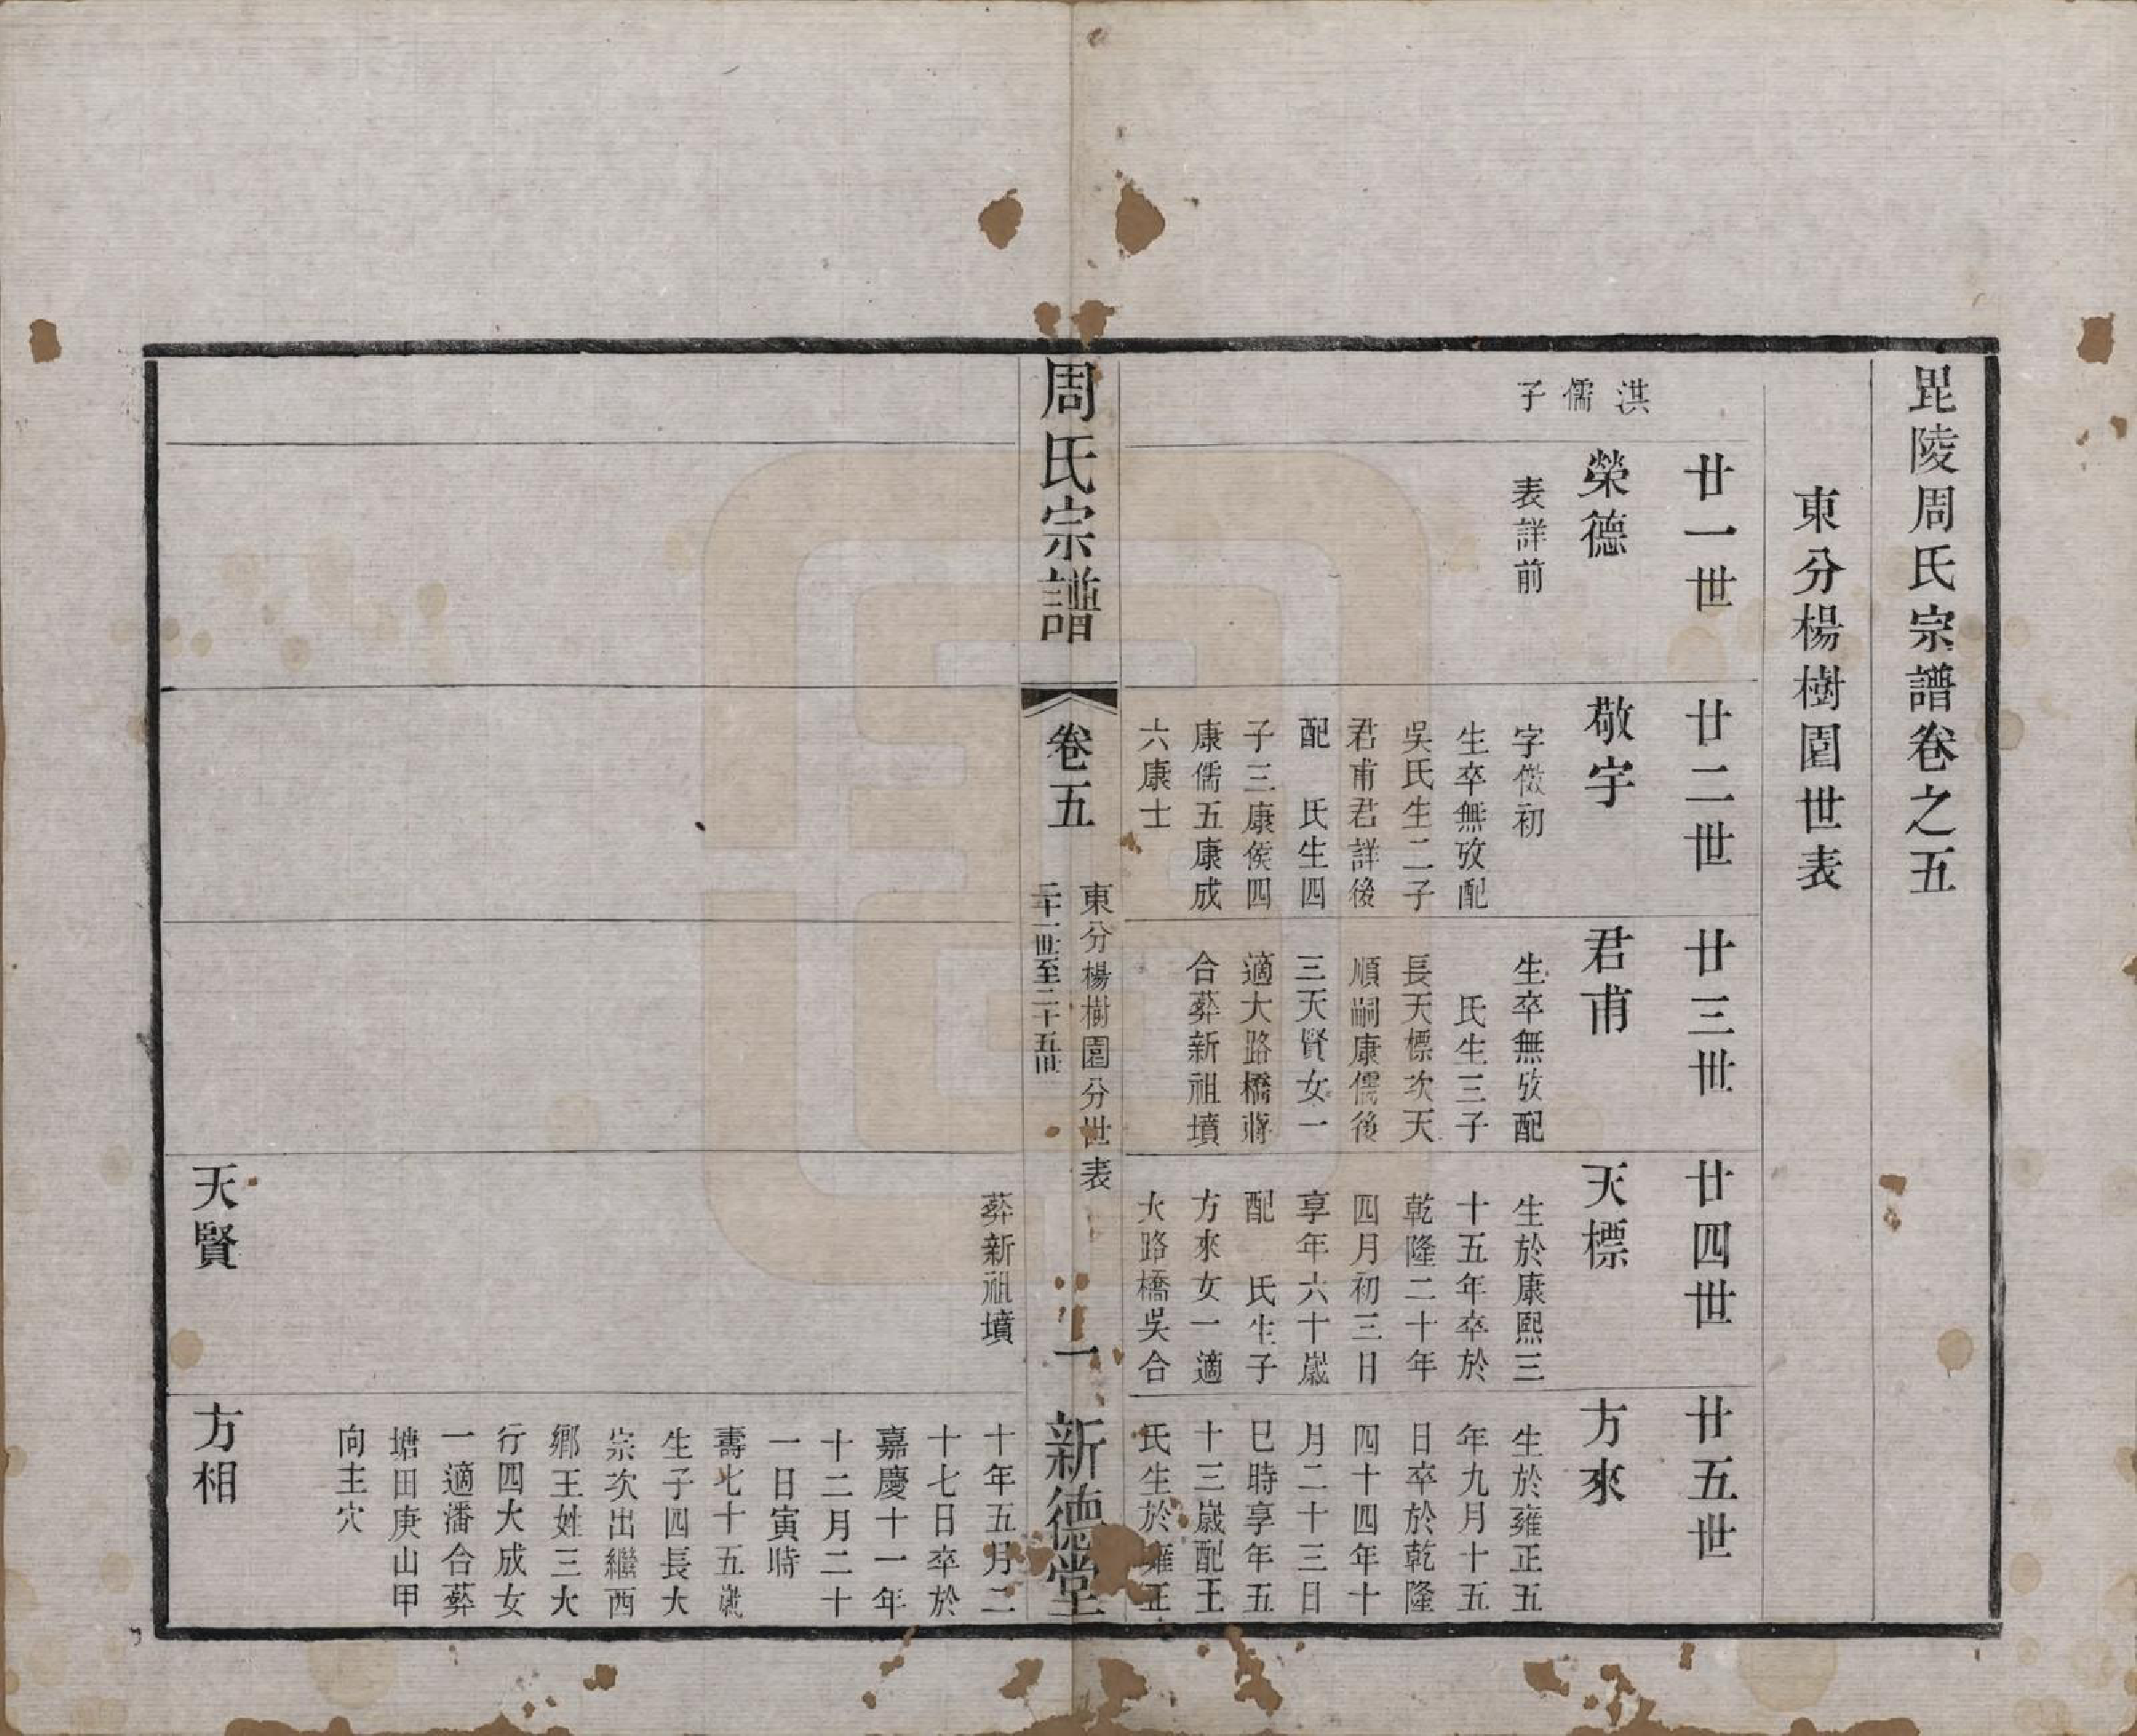 毘陵周氏宗譜卷之五
東分楊樹園世表
廿一世
廿二世
廿三世
廿四世
廿五世
洪
儒
子
榮德
表詳前
敬宇
字儆初
生卒無攷配
吳氏生二子
君甫君詳後
配　氏生四
子三康侯四
康儒五康成
六康士
君甫
生卒無攷配
氏生三子
長天標次天
順嗣康儒後
三天賢女一
適大路橋蔣
合葬新祖墳
天標
生於康熙三
十五年卒於
乾隆二十年
四月初三日
享年六十歲
配　氏生子
方來女一適
大路橋吳合
葬新祖墳
方來
生於雍正五
年九月十五
日卒於乾隆
四十四年十
月二十三日
巳時享年五
十三歲配王
氏生於雍正
十年五月二
十七日卒於
嘉慶十一年
十二月二十
一日寅時
壽七十五歲
生子四長大
宗次出繼西
鄉王姓三大
行四大成女
一適潘合葬
塘田庚山甲
向主穴
周氏宗譜
卷五
東分楊樹園分世表
二十一世至二十五世
一
新德堂
天賢
方相